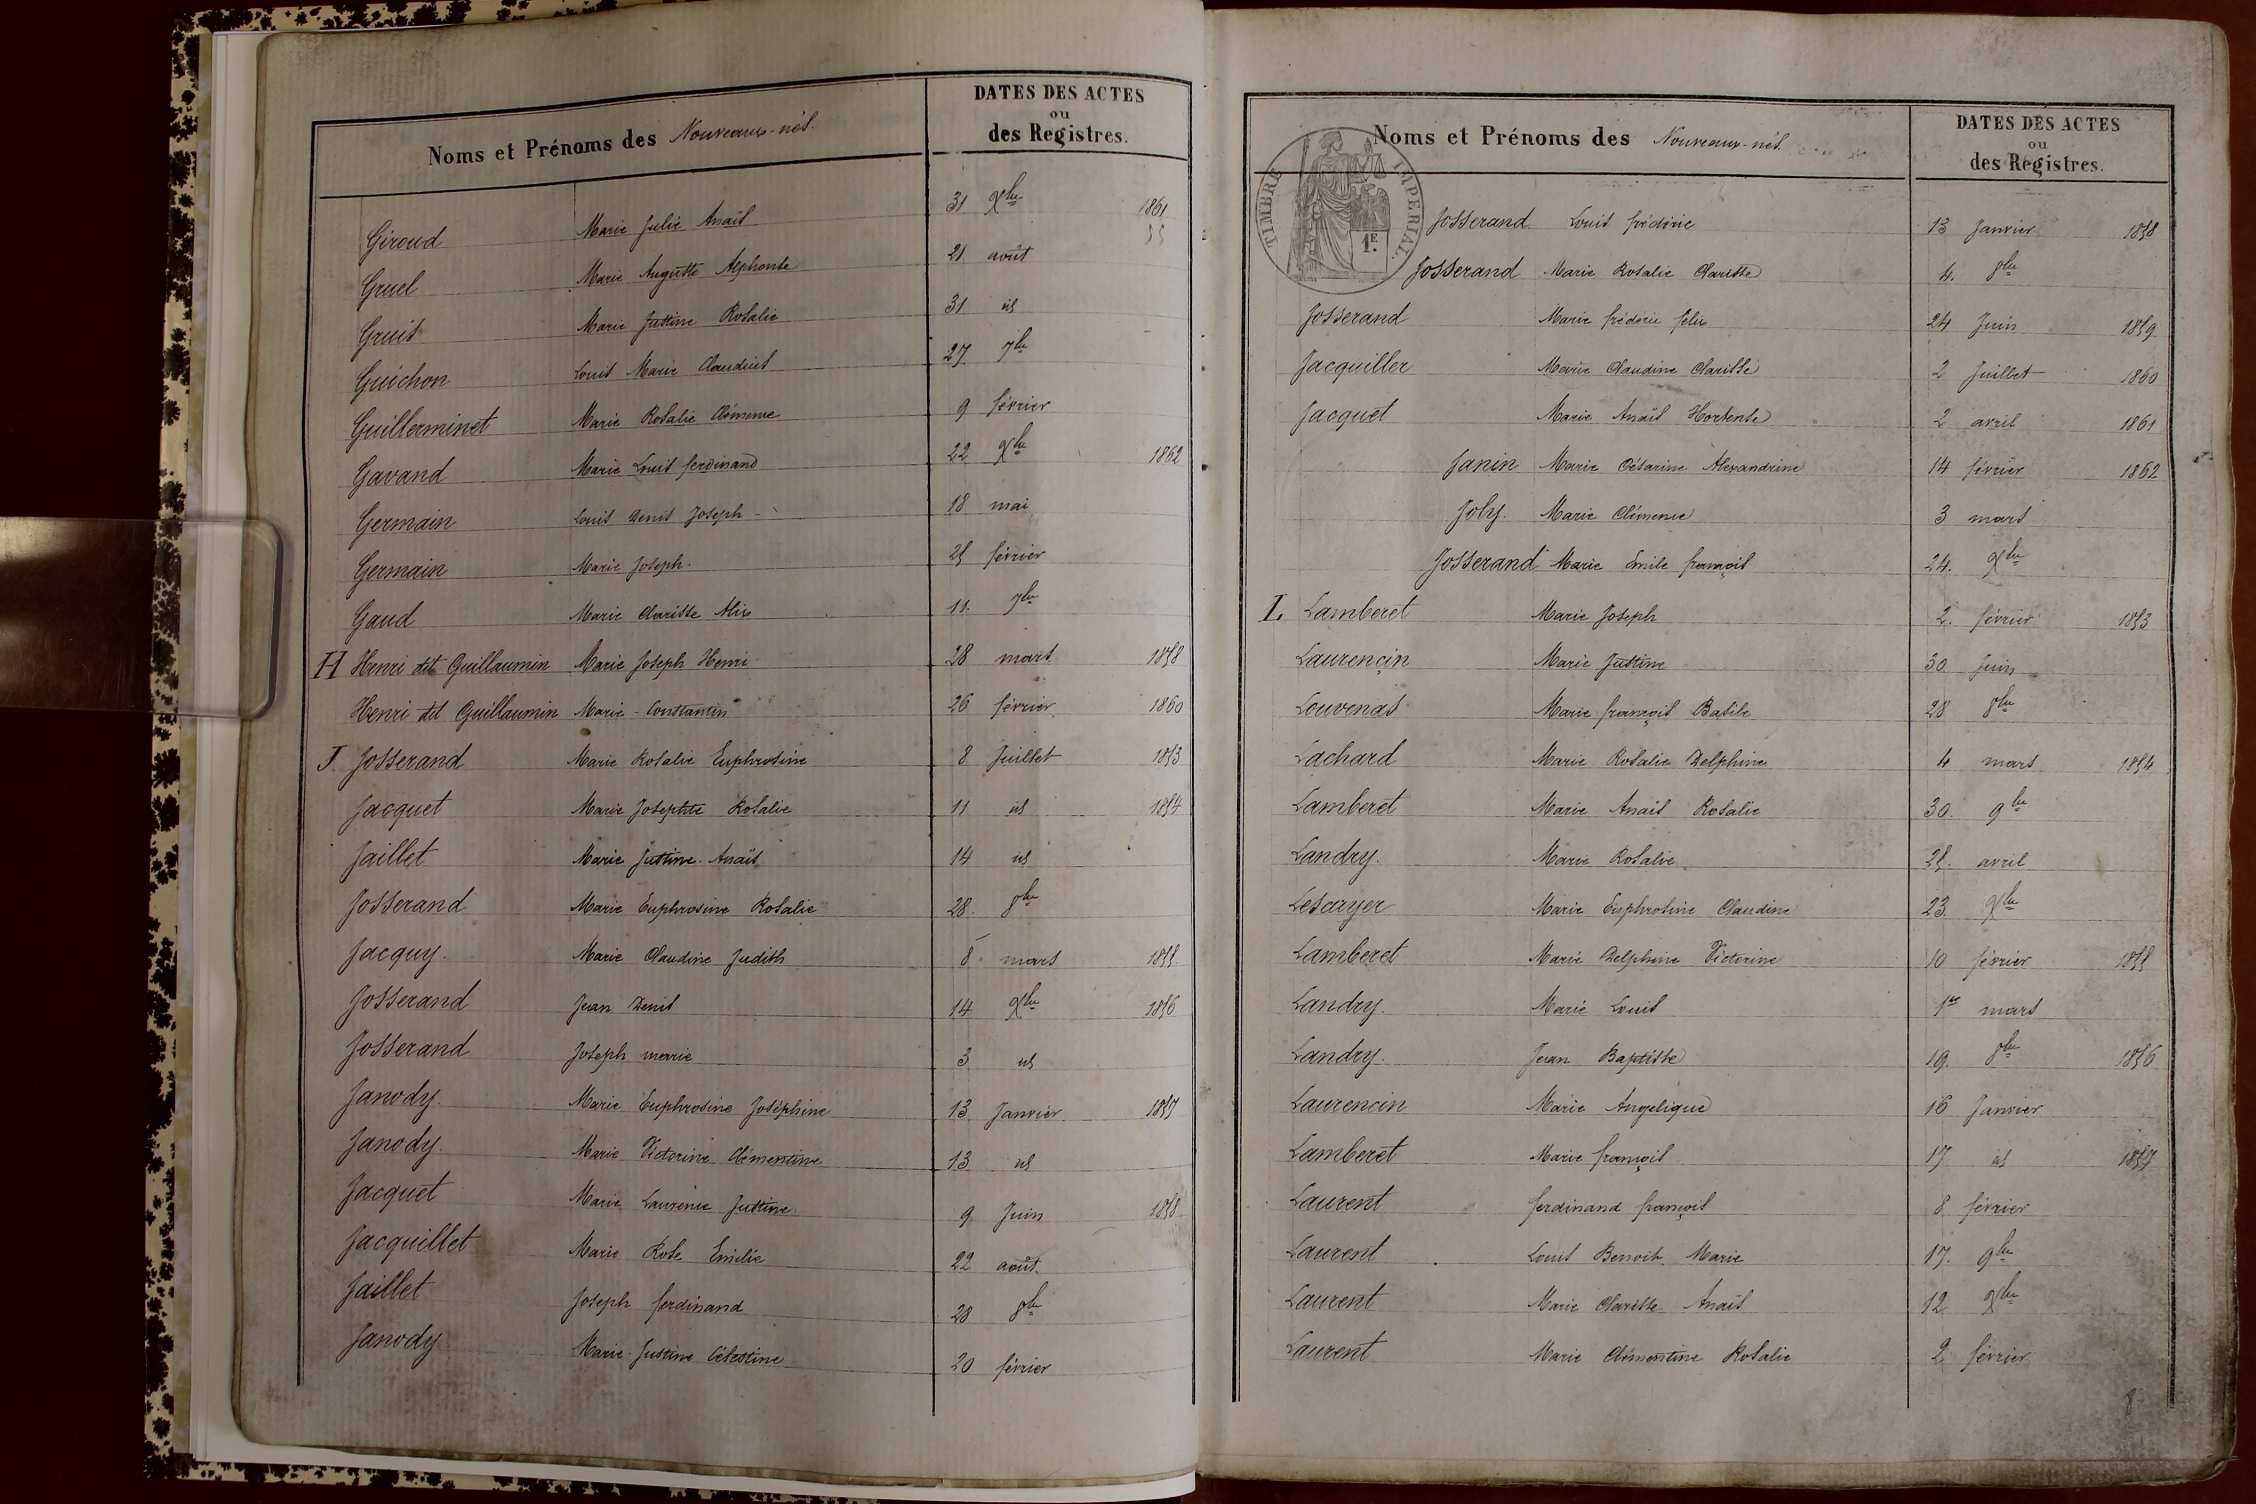 Noms et Prénoms des Nouveaux-nés.
DATES DES ACTES
ou
des Registres.
Giroud Marie Julie Anaïs 31 Xbre 1861
Gruel Marie Auguste Alphonse 21 août
Gruis Marie Justine Rosalie 31 id
Guichon Louis Marie Claudius 27 7bre
Guillerminet Marie Rosalie Clémence 9 février
Gavand Marie Louis ferdinand 22 Xbre 1862
Germain Louis Denis Joseph 18 mai
Germain Marie Joseph. 25 février
Gaud Marie Clarisse Alix 11. 7bre
H Henri dit Guillaumin Marie Joseph Henri 28 mars 1858
Henri dit Guillaumin Marie-Constantin 26 février 1860
J Josserand Marie Rosalie Euphrosine 8 Juillet 1853
Jacquet Marie Josephte Rosalie 11 id 1854
Jaillet Marie Justine Anaïs 14 id
Josserand Marie Euphrosine Rosalie 28. 8bre
Jacquy. Marie Claudine Judith 8 mars 1855
Josserand Jean Denis 14 Xbre 1856
Josserand Joseph marie 3 id
Janody. Marie Euphrosine Joséphine 13 Janvier 1857
Janody. Marie Victorine Clémentine 13 id
Jacquet Marie Laurence Justine 9 Juin 1858
Jacquillet Marie Rose Emilie 22 août.
Jaillet Joseph ferdinand 28 8bre
Janody Marie-Justine Célestine 20 février
Noms et Prénoms des Nouveaux-nés.
DATES DES ACTES
ou
des Registres.
TIMBRE IMPERIAL.
1.E
Josserand Louis frédéric 13 Janvier 1858
Josserand Marie Rosalie Clarisse 4. 8bre
Josserand Marie frédéric félix 24 Juin 1859
Jacquiller Marie Claudine Clarisse 2 Juillet 1860
Jacquet Marie Anaïs Hortense 2 avril 1861
Janin Marie Césarine Alexandrine 14 février 1862
Joly. Marie Clémence 3 mars
Josserand Marie Emile françois 24. Xbre
L Lamberet Marie Joseph 2. février 1853
Laurençin Marie Justine 30 Juin
Louvenas Marie françois Basile 28 8bre
Lachard Marie Rosalie Delphine 4 mars 1854
Lamberet Marie Anaïs Rosalie 30. 9bre
Landry. Marie Rosalie 25. avril
Lescayer Marie Euphrosine Claudine 23 Xbre
Lamberet Marie Delphine Victorine 10 février 1855
Landry. Marie Louis 1er mars
Landry. Jean Baptiste 19. 8bre 1856
Laurencin Marie Angelique 16 Janvier
Lamberet Marie françois 17 id 1857
Laurent ferdinand françois 8 février
Laurent Louis Benoit Marie 17. 9bre
Laurent Marie Clarisse Anaïs 12 Xbre
Laurent Marie Clémentine Rosalie 2 février
8